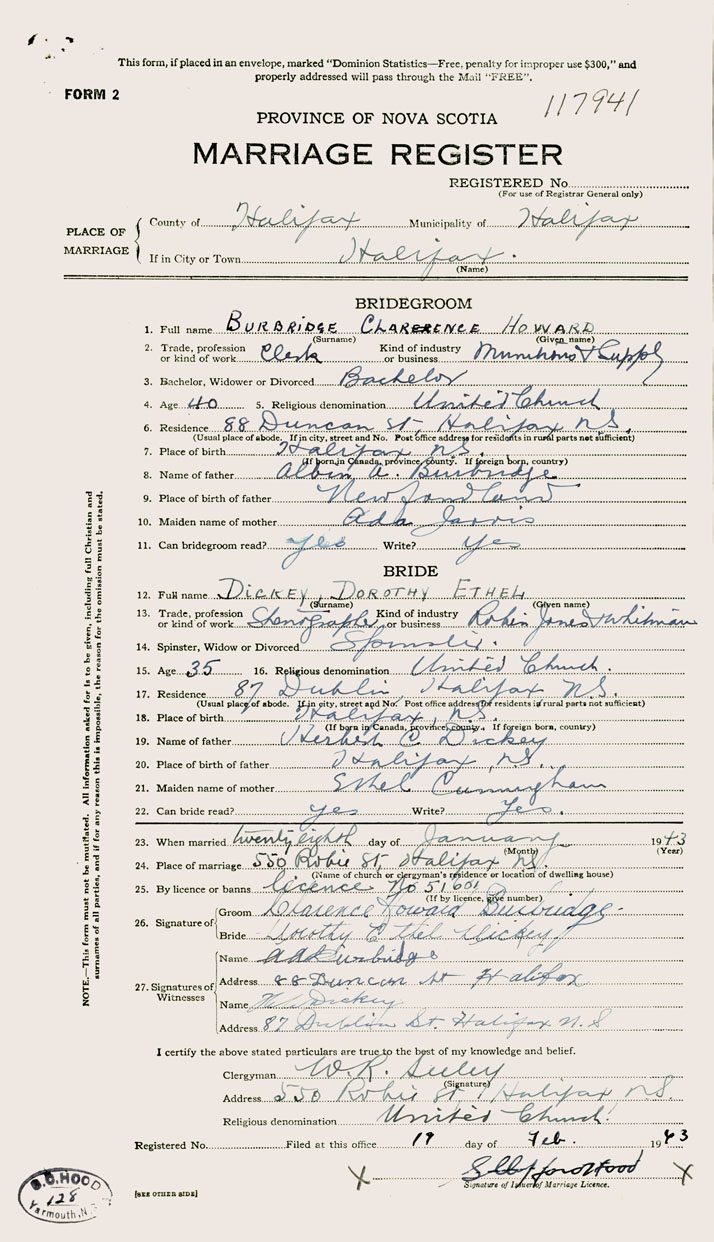 This form, if placed in an envelope, marked "Dominion Statistics—Free, penalty for improper use $300," and
properly addressed will pass through the Mail "FREE".
FORM 2
117941
PROVINCE OF NOVA SCOTIA
MARRIAGE REGISTER
REGISTERED No.
(For use of Registrar General only)
PLACE OF MARRIAGE
County of Halifax Municipality of Halifax
If in City or Town Halifax.
(Name)
BRIDEGROOM
1. Full name BURBRIDGE CLARERENCE HOWARD
(Surname) (Given name)
2. Trade, profession or kind of work Clerk Kind of industry or business Munitions & Supply
3. Bachelor, Widower or Divorced Bachelor
4. Age 40 5. Religious denomination United Church
6. Residence 88 Duncan St, Halifax N.S.
(Usual place of abode. If in city, street and No. Post office address for residents in rural parts not sufficient)
7. Place of birth Halifax N.S.
(If born in Canada, province, county. If foreign born, country)
8. Name of father Albin A. Burbridge
9. Place of birth of father Newfoundland
10. Maiden name of mother Ada Jarvis
11. Can bridegroom read? yes Write? yes
BRIDE
12. Full name DICKEY, DOROTHY ETHEL
(Surname) (Given name)
13. Trade, profession or kind of work Stenographer Kind of industry or business Robin Jones & Whitman
14. Spinster, Widow or Divorced Spinster.
15. Age 35 16. Religious denomination United Church.
17. Residence 87 Dublin, Halifax N.S.
(Usual place of abode. If in city, street and No. Post office address for residents in rural parts not sufficient)
18. Place of birth Halifax, N.S.
(If born in Canada, province, county. If foreign born, country)
19. Name of father Herbert C. Dickey
20. Place of birth of father Halifax, N.S.
21. Maiden name of mother Ethel Cunningham
22. Can bride read? yes Write? Yes.
23. When married twenty eighth day of January 1943
(Month) (Year)
24. Place of marriage 550 Robie St, Halifax N.S.
(Name of church or clergyman's residence or location of dwelling house)
25. By licence or banns licence No 51601
(If by licence, give number)
26. Signature of
Groom Clarence Howard Burbridge
Bride Dorothy Ethel Dickey
27. Signatures of Witnesses
Name Burbridge
Address 88 Duncan St Halifax
Name Dickey
Address 87 Dublin St. Halifax N.S
I certify the above stated particulars are true to the best of my knowledge and belief.
Clergyman W.R. Seeley
(Signature)
Address 550 Robie St Halifax N.S.
Religious denomination United Church.
Registered No. Filed at this office 19 day of Feb. 1943
Signature of Issuer of Marriage Licence.
[SEE OTHER SIDE]
HOOD
128
Yarmouth, N.
NOTE.—This form must not be mutilated. All information asked for is to be given, including full Christian and
surnames of all parties, and if for any reason this is impossible, the reason for the omission must be stated.